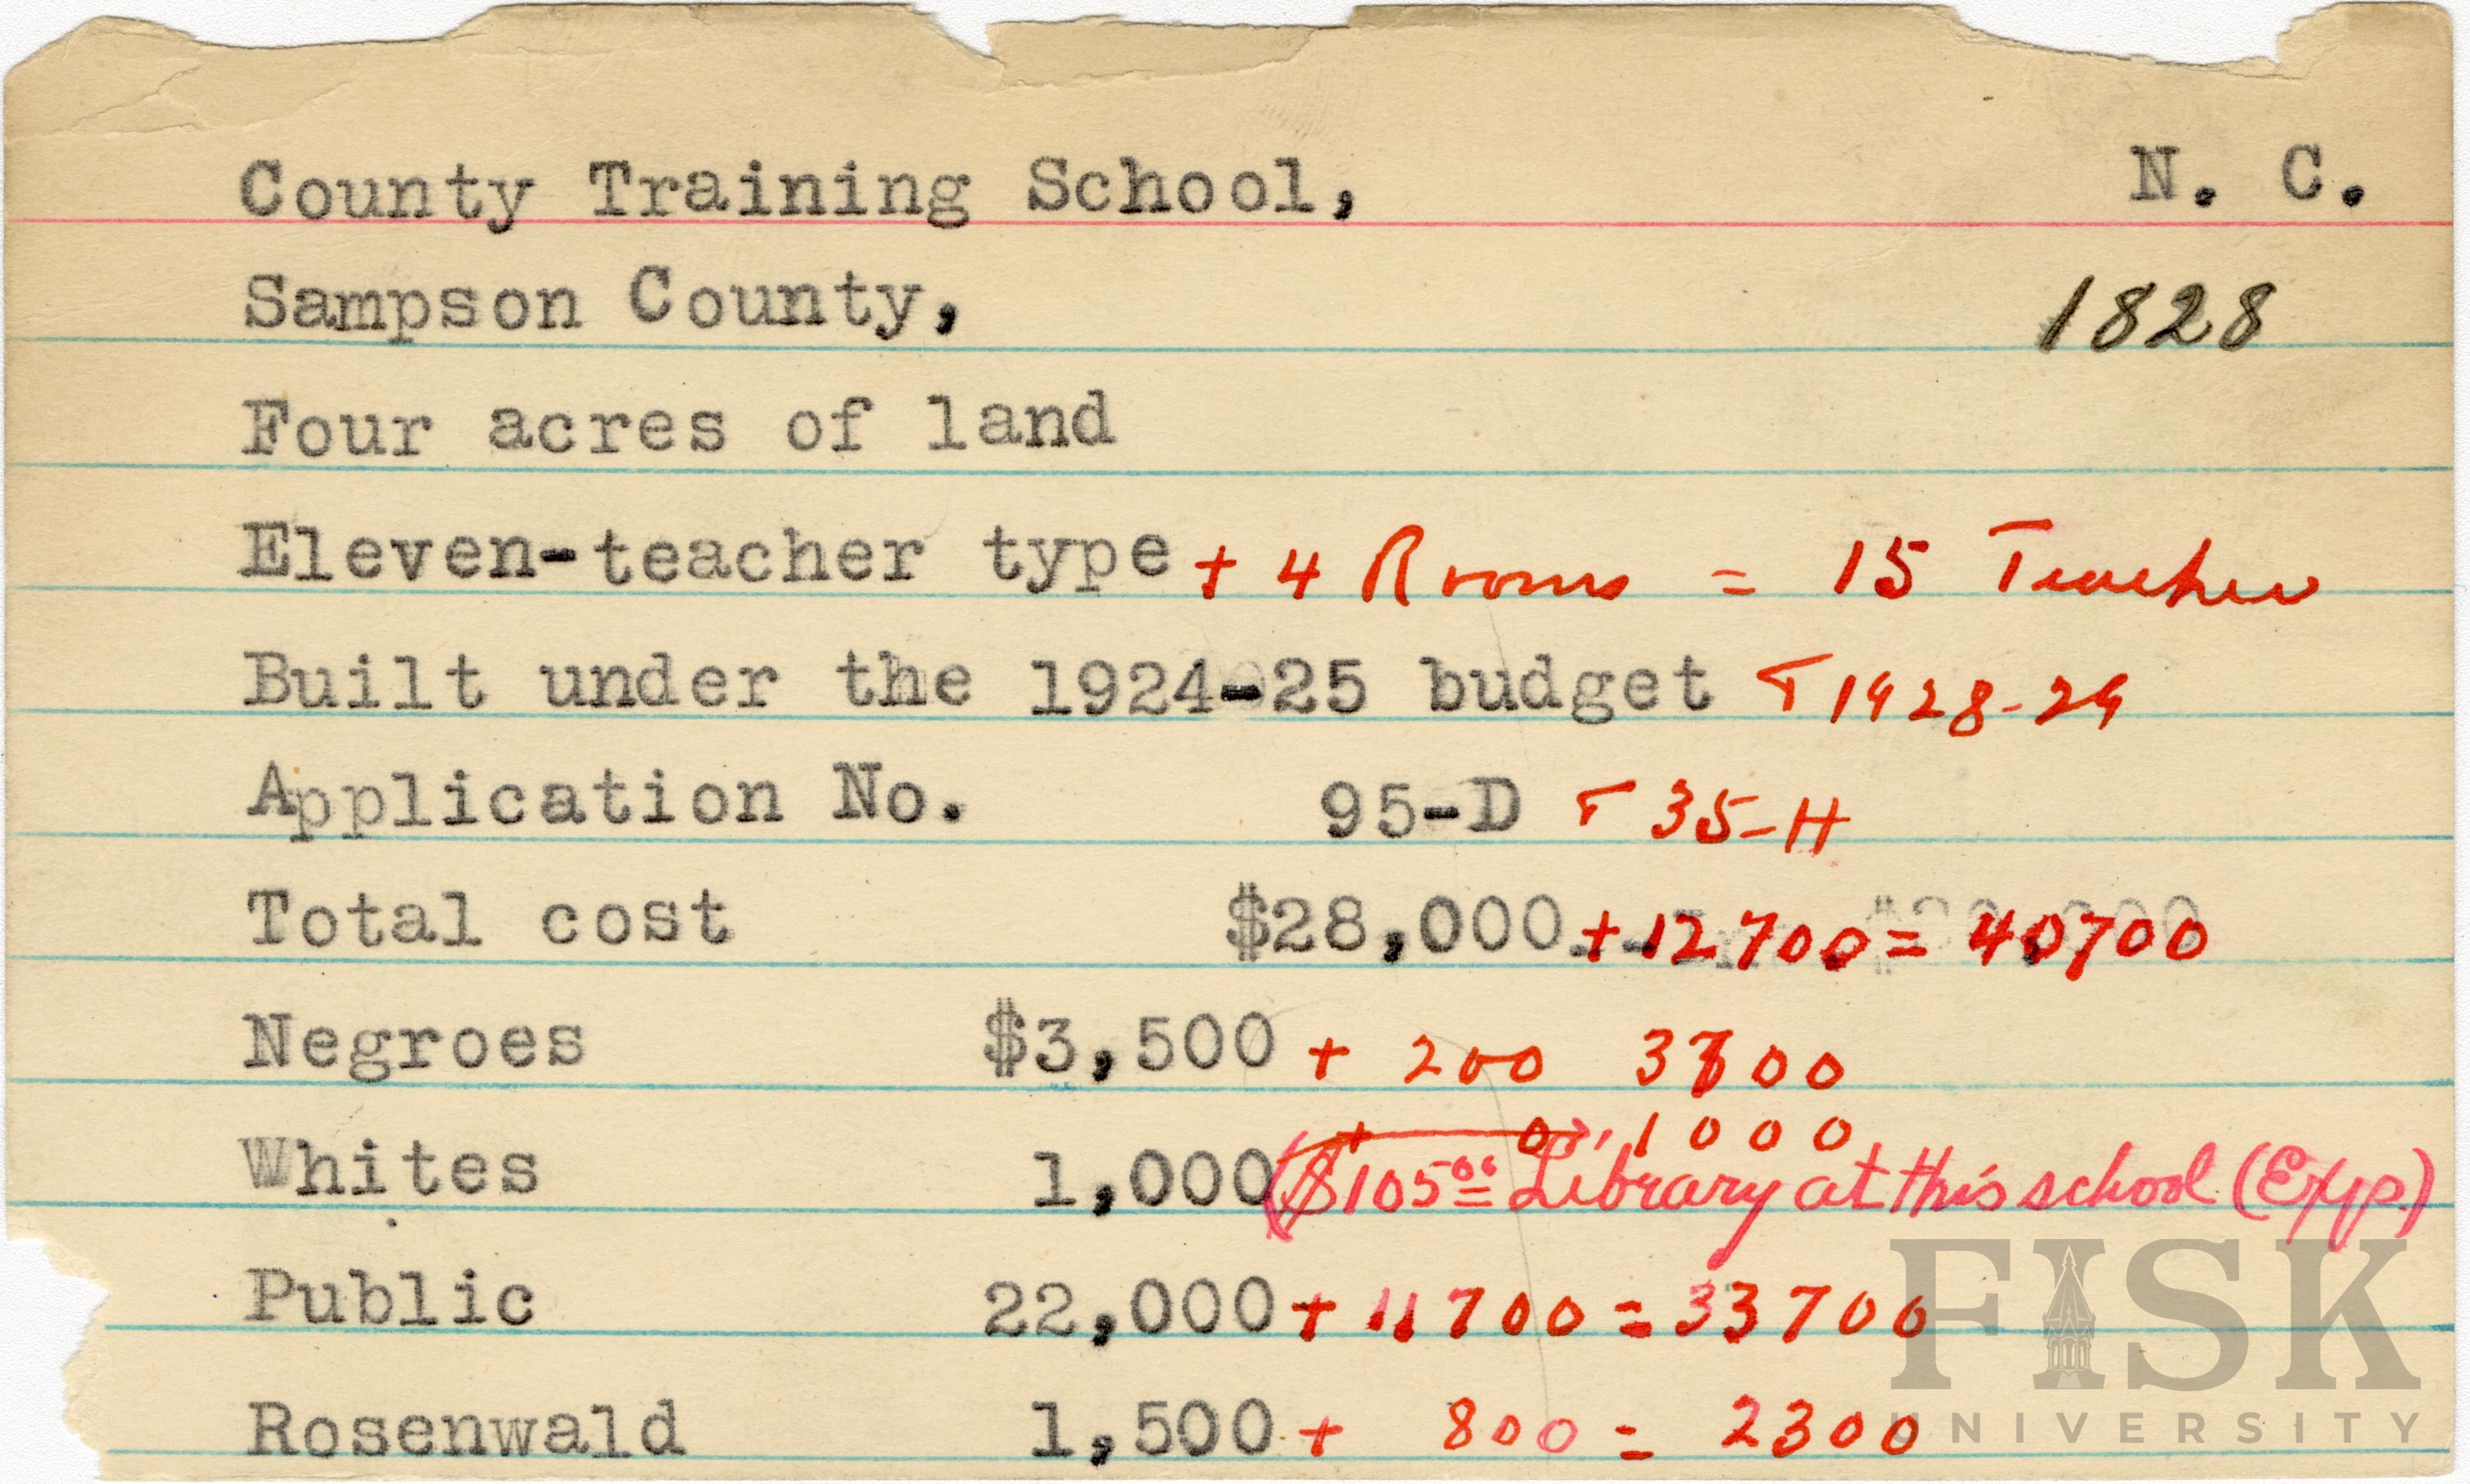 County Training School, N. C.
Sampson County, 1828
Four acres of land
Eleven-teacher type + 4 Rooms = 15 Teacher
Built under the 1924-25 budget + 1928-29
Application No. 95-D + 35-H
Total cost $28,000 + 12700 = 40700
Negroes $3,500 + 200 3700
+ 0 1000
Whites 1,000 ($105.00 Library at this school (Exp.)
Public 22,000 + 11700 = 33700
Rosenwald 1,500 + 800 = 2300
FISK
UNIVERSITY